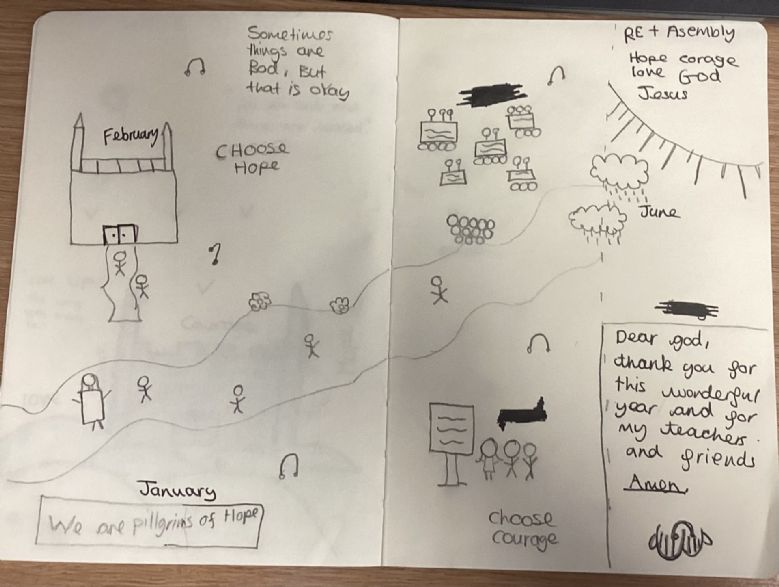 Sometimes
things are
Bad, But
that is okay
February
CHOOSE
HOPE
January
We are pillgrims of Hope
RE + Asembly
Hope corage
love God
Jesus
June
choose
courage
Dear god,
thank you for
this wonderful
year and for
my teachers.
and friends
Amen.